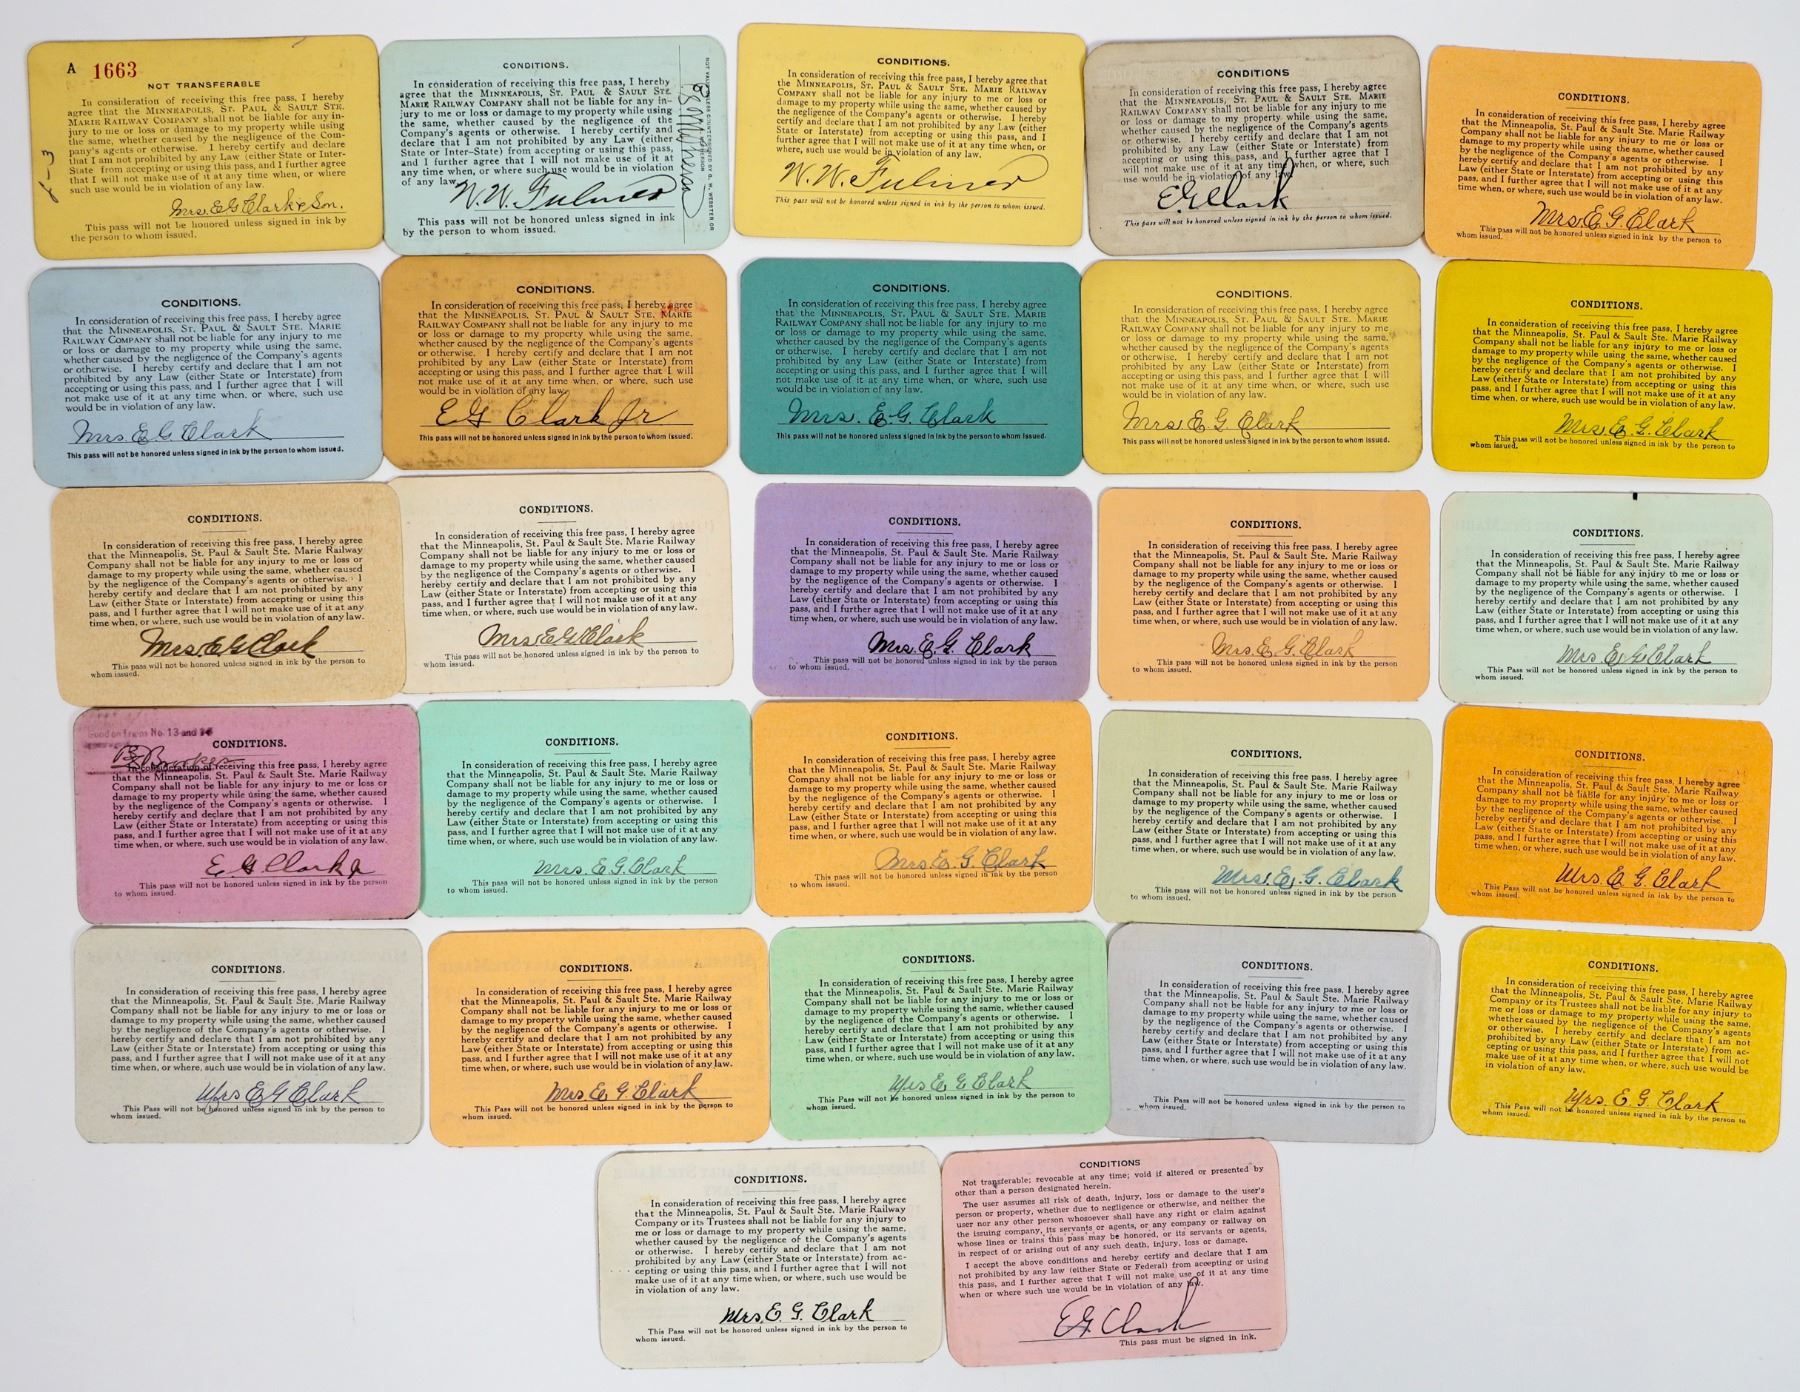 A 1663
NOT TRANSFERABLE
In consideration of receiving this free pass, I hereby
agree that the MINNEAPOLIS, ST. PAUL & SAULT STE.
MARIE RAILWAY COMPANY shall not be liable for any in-
jury to me or loss or damage to my property while using
the same, whether caused by the negligence of the Com-
pany's agents or otherwise. I hereby certify and declare
that I am not prohibited by any Law (either State or Inter-
State) from accepting or using this pass, and I further agree
that I will not make use of it at any time when, or where
such use would be in violation of any law.
Mrs. E G Clark & Son.
This pass will not be honored unless signed in ink by
the person to whom issued.
CONDITIONS.
In consideration of receiving this free pass, I hereby
agree that the MINNEAPOLIS, ST. PAUL & SAULT STE.
MARIE RAILWAY COMPANY shall not be liable for any in-
jury to me or loss or damage to my property while using
the same, whether caused by the negligence of the
Company's agents or otherwise. I hereby certify and
declare that I am not prohibited by any Law (either
State or Inter-State) from accepting or using this pass,
and I further agree that I will not make use of it at
any time when, or where, such use would be in violation
of any law.
W. W. Fulmer
This pass will not be honored unless signed in ink
by the person to whom issued.
CONDITIONS.
In consideration of receiving this free pass, I hereby agree that
the MINNEAPOLIS, ST. PAUL & SAULT STE. MARIE RAILWAY
COMPANY shall not be liable for any injury to me or loss or
damage to my property while using the same, whether caused by
the negligence of the Company's agents or otherwise. I hereby
certify and declare that I am not prohibited by any Law (either
State or Interstate) from accepting or using this pass, and I
further agree that I will not make use of it at any time when, or
where, such use would be in violation of any law.
W. W. Fulmer
This pass will not be honored unless signed in ink by the person to whom issued.
CONDITIONS
In consideration of receiving this free pass, I hereby agree
that the MINNEAPOLIS, ST. PAUL & SAULT STE. MARIE
RAILWAY COMPANY shall not be liable for any injury to me
or loss or damage to my property while using the same,
whether caused by the negligence of the Company's agents,
or otherwise. I hereby certify and declare that I am not
prohibited by any Law (either State or Interstate) from
accepting or using this pass, and I further agree that I
will not make use of it at any time when, or where, such
use would be in violation of any law
E.G. Clark
This pass will not be honored unless signed in ink by the person to whom issued.
CONDITIONS.
In consideration of receiving this free pass, I hereby agree
that the Minneapolis, St. Paul & Sault Ste. Marie Railway
Company shall not be liable for any injury to me or loss or
damage to my property while using the same, whether caused
by the negligence of the Company's agents or otherwise. I
hereby certify and declare that I am not prohibited by any
Law (either State or Interstate) from accepting or using this
pass, and I further agree that I will not make use of it at any
time when, or where, such use would be in violation of any law.
Mrs. E. G. Clark
This pass will not be honored unless signed in ink by the person to
whom issued.
CONDITIONS.
In consideration of receiving this free pass, I hereby agree
that the MINNEAPOLIS, ST. PAUL & SAULT STE. MARIE
RAILWAY COMPANY shall not be liable for any injury to me
or loss or damage to my property while using the same,
whether caused by the negligence of the Company's agents
or otherwise. I hereby certify and declare that I am not
prohibited by any Law (either State or Interstate) from
accepting or using this pass, and I further agree that I will
not make use of it at any time when, or where, such use
would be in violation of any law.
Mrs E G Clark
This pass will not be honored unless signed in ink by the person to whom issued.
CONDITIONS.
In consideration of receiving this free pass, I hereby agree
that the MINNEAPOLIS, ST. PAUL & SAULT STE. MARIE
RAILWAY COMPANY shall not be liable for any injury to me
or loss or damage to my property while using the same,
whether caused by the negligence of the Company's agents
or otherwise. I hereby certify and declare that I am not
prohibited by any Law (either State or Interstate) from
accepting or using this pass, and I further agree that I will
not make use of it at any time when, or where, such use
would be in violation of any law.
E G Clark Jr
This pass will not be honored unless signed in ink by the person to whom issued.
CONDITIONS.
In consideration of receiving this free pass, I hereby agree
that the MINNEAPOLIS, ST. PAUL & SAULT STE. MARIE
RAILWAY COMPANY shall not be liable for any injury to me
or loss or damage to my property while using the same,
whether caused by the negligence of the Company's agents
or otherwise. I hereby certify and declare that I am not
prohibited by any Law (either State or Interstate) from
accepting or using this pass, and I further agree that I will
not make use of it at any time when, or where, such use
would be in violation of any law.
Mrs. E. G. Clark
This pass will not be honored unless signed in ink by the person to whom issued.
CONDITIONS.
In consideration of receiving this free pass, I hereby agree
that the MINNEAPOLIS, ST. PAUL & SAULT STE. MARIE
RAILWAY COMPANY shall not be liable for any injury to me
or loss or damage to my property while using the same,
whether caused by the negligence of the Company's agents
or otherwise. I hereby certify and declare that I am not
prohibited by any Law (either State or Interstate) from
accepting or using this pass, and I further agree that I will
not make use of it at any time when, or where, such use
would be in violation of any law.
Mrs E G Clark
This pass will not be honored unless signed in ink by the person to whom issued.
CONDITIONS.
In consideration of receiving this free pass, I hereby agree
that the Minneapolis, St. Paul & Sault Ste. Marie Railway
Company shall not be liable for any injury to me or loss or
damage to my property while using the same, whether caused
by the negligence of the Company's agents or otherwise. I
hereby certify and declare that I am not prohibited by any
Law (either State or Interstate) from accepting or using this
pass, and I further agree that I will not make use of it at any
time when, or where, such use would be in violation of any law.
Mrs E. G. Clark
This pass will not be honored unless signed in ink by the person to
whom issued.
CONDITIONS.
In consideration of receiving this free pass, I hereby agree
that the Minneapolis, St. Paul & Sault Ste. Marie Railway
Company shall not be liable for any injury to me or loss or
damage to my property while using the same, whether caused
by the negligence of the Company's agents or otherwise. I
hereby certify and declare that I am not prohibited by any
Law (either State or Interstate) from accepting or using this
pass, and I further agree that I will not make use of it at any
time when, or where, such use would be in violation of any law.
Mrs. E G Clark
This pass will not be honored unless signed in ink by the person to
whom issued.
CONDITIONS.
In consideration of receiving this free pass, I hereby agree
that the Minneapolis, St. Paul & Sault Ste. Marie Railway
Company shall not be liable for any injury to me or loss or
damage to my property while using the same, whether caused
by the negligence of the Company's agents or otherwise. I
hereby certify and declare that I am not prohibited by any
Law (either State or Interstate) from accepting or using this
pass, and I further agree that I will not make use of it at any
time when, or where, such use would be in violation of any law.
Mrs. E G Clark
This pass will not be honored unless signed in ink by the person to
whom issued.
CONDITIONS.
In consideration of receiving this free pass, I hereby agree
that the Minneapolis, St. Paul & Sault Ste. Marie Railway
Company shall not be liable for any injury to me or loss or
damage to my property while using the same, whether caused
by the negligence of the Company's agents or otherwise. I
hereby certify and declare that I am not prohibited by any
Law (either State or Interstate) from accepting or using this
pass, and I further agree that I will not make use of it at any
time when, or where, such use would be in violation of any law.
Mrs. E. G. Clark
This pass will not be honored unless signed in ink by the person
to whom issued.
CONDITIONS.
In consideration of receiving this free pass, I hereby agree
that the Minneapolis, St. Paul & Sault Ste. Marie Railway
Company shall not be liable for any injury to me or loss or
damage to my property while using the same, whether caused
by the negligence of the Company's agents or otherwise. I
hereby certify and declare that I am not prohibited by any
Law (either State or Interstate) from accepting or using this
pass, and I further agree that I will not make use of it at any
time when, or where, such use would be in violation of any law.
Mrs. E. G. Clark
This pass will not be honored unless signed in ink by the person to
whom issued.
CONDITIONS.
In consideration of receiving this free pass, I hereby agree
that the Minneapolis, St. Paul & Sault Ste. Marie Railway
Company shall not be liable for any injury to me or loss or
damage to my property while using the same, whether caused
by the negligence of the Company's agents or otherwise. I
hereby certify and declare that I am not prohibited by any
Law (either State or Interstate) from accepting or using this
pass, and I further agree that I will not make use of it at any
time when, or where, such use would be in violation of any law.
Mrs E G Clark
This Pass will not be honored unless signed in ink by the person to
whom issued.
Good on Trains No. 13 and
CONDITIONS.
In consideration of receiving this free pass, I hereby agree
that the Minneapolis, St. Paul & Sault Ste. Marie Railway
Company shall not be liable for any injury to me or loss or
damage to my property while using the same, whether caused
by the negligence of the Company's agents or otherwise. I
hereby certify and declare that I am not prohibited by any
Law (either State or Interstate) from accepting or using this
pass, and I further agree that I will not make use of it at any
time when, or where, such use would be in violation of any law.
E G Clark Jr
This pass will not be honored unless signed in ink by the person
to whom issued.
CONDITIONS.
In consideration of receiving this free pass, I hereby agree
that the Minneapolis, St. Paul & Sault Ste. Marie Railway
Company shall not be liable for any injury to me or loss or
damage to my property while using the same, whether caused
by the negligence of the Company's agents or otherwise. I
hereby certify and declare that I am not prohibited by any
Law (either State or Interstate) from accepting or using this
pass, and I further agree that I will not make use of it at any
time when, or where, such use would be in violation of any law.
Mrs. E. G. Clark
This pass will not be honored unless signed in ink by the person
to whom issued.
CONDITIONS.
In consideration of receiving this free pass, I hereby agree
that the Minneapolis, St. Paul & Sault Ste. Marie Railway
Company shall not be liable for any injury to me or loss or
damage to my property while using the same, whether caused
by the negligence of the Company's agents or otherwise. I
hereby certify and declare that I am not prohibited by any
Law (either State or Interstate) from accepting or using this
pass, and I further agree that I will not make use of it at any
time when, or where, such use would be in violation of any law.
Mrs E. G. Clark
This pass will not be honored unless signed in ink by the person
to whom issued.
CONDITIONS.
In consideration of receiving this free pass, I hereby agree
that the Minneapolis, St. Paul & Sault Ste. Marie Railway
Company shall not be liable for any injury to me or loss or
damage to my property while using the same, whether caused
by the negligence of the Company's agents or otherwise. I
hereby certify and declare that I am not prohibited by any
Law (either State or Interstate) from accepting or using this
pass, and I further agree that I will not make use of it at any
time when, or where, such use would be in violation of any law.
Mrs. E. G. Clark
This pass will not be honored unless signed in ink by the person
to whom issued.
CONDITIONS.
In consideration of receiving this free pass, I hereby agree
that the Minneapolis, St. Paul & Sault Ste. Marie Railway
Company shall not be liable for any injury to me or loss or
damage to my property while using the same, whether caused
by the negligence of the Company's agents or otherwise. I
hereby certify and declare that I am not prohibited by any
Law (either State or Interstate) from accepting or using this
pass, and I further agree that I will not make use of it at any
time when, or where, such use would be in violation of any law.
Mrs E G. Clark
This Pass will not be honored unless signed in ink by the person to
whom issued.
CONDITIONS.
In consideration of receiving this free pass, I hereby agree
that the Minneapolis, St. Paul & Sault Ste. Marie Railway
Company shall not be liable for any injury to me or loss or
damage to my property while using the same, whether caused
by the negligence of the Company's agents or otherwise. I
hereby certify and declare that I am not prohibited by any
Law (either State or Interstate) from accepting or using this
pass, and I further agree that I will not make use of it at any
time when, or where, such use would be in violation of any law.
Mrs E G Clark
This Pass will not be honored unless signed in ink by the person to
whom issued.
CONDITIONS.
In consideration of receiving this free pass, I hereby agree
that the Minneapolis, St. Paul & Sault Ste. Marie Railway
Company shall not be liable for any injury to me or loss or
damage to my property while using the same, whether caused
by the negligence of the Company's agents or otherwise. I
hereby certify and declare that I am not prohibited by any
Law (either State or Interstate) from accepting or using this
pass, and I further agree that I will not make use of it at any
time when, or where, such use would be in violation of any law.
Mrs E G. Clark
This Pass will not be honored unless signed in ink by the person to
whom issued.
CONDITIONS.
In consideration of receiving this free pass, I hereby agree
that the Minneapolis, St. Paul & Sault Ste. Marie Railway
Company shall not be liable for any injury to me or loss or
damage to my property while using the same, whether caused
by the negligence of the Company's agents or otherwise. I
hereby certify and declare that I am not prohibited by any
Law (either State or Interstate) from accepting or using this
pass, and I further agree that I will not make use of it at any
time when, or where, such use would be in violation of any law.
Mrs E G Clark
This Pass will not be honored unless signed in ink by the person to
whom issued.
CONDITIONS.
In consideration of receiving this free pass, I hereby agree
that the Minneapolis, St. Paul & Sault Ste. Marie Railway
Company shall not be liable for any injury to me or loss or
damage to my property while using the same, whether caused
by the negligence of the Company's agents or otherwise. I
hereby certify and declare that I am not prohibited by any
Law (either State or Interstate) from accepting or using this
pass, and I further agree that I will not make use of it at any
time when, or where, such use would be in violation of any law.
This Pass will not be honored unless signed in ink by the person to
whom issued.
CONDITIONS.
In consideration of receiving this free pass, I hereby agree
that the Minneapolis, St. Paul & Sault Ste. Marie Railway
Company or its Trustees shall not be liable for any injury to
me or loss or damage to my property while using the same,
whether caused by the negligence of the Company's agents
or otherwise. I hereby certify and declare that I am not
prohibited by any Law (either State or Interstate) from ac-
cepting or using this pass, and I further agree that I will not
make use of it at any time when, or where, such use would be
in violation of any law.
Mrs. E. G. Clark
This Pass will not be honored unless signed in ink by the person to
whom issued.
CONDITIONS.
In consideration of receiving this free pass, I hereby agree
that the Minneapolis, St. Paul & Sault Ste. Marie Railway
Company or its Trustees shall not be liable for any injury to
me or loss or damage to my property while using the same,
whether caused by the negligence of the Company's agents
or otherwise. I hereby certify and declare that I am not
prohibited by any Law (either State or Interstate) from ac-
cepting or using this pass, and I further agree that I will not
make use of it at any time when, or where, such use would be
in violation of any law.
Mrs. E G. Clark
This Pass will not be honored unless signed in ink by the person to
whom issued.
CONDITIONS
Not transferable; revocable at any time; void if altered or presented by
other than a person designated herein.
The user assumes all risk of death, injury, loss or damage to the user's
person or property, whether due to negligence or otherwise, and neither the
user nor any other person whosoever shall have any right or claim against
the issuing company, its servants or agents, or any company or railway on
whose lines or trains this pass may be honored, or its servants or agents,
in respect of or arising out of any such death, injury, loss or damage.
I accept the above conditions and hereby certify and declare that I am
not prohibited by any law (either State or Federal) from accepting or using
this pass, and I further agree that I will not make use of it at any time
when or where such use would be in violation of any law.
E G Clark
This pass must be signed in ink.